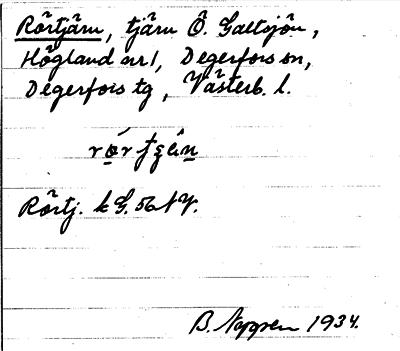 Rörtjärn, tjärn Ö. Galtsjön,
Högland nr 1, Degerfors sn,
Degerfors tg, Västerb. l.
Rörtj. k G. 56
B. Nygren 1934.